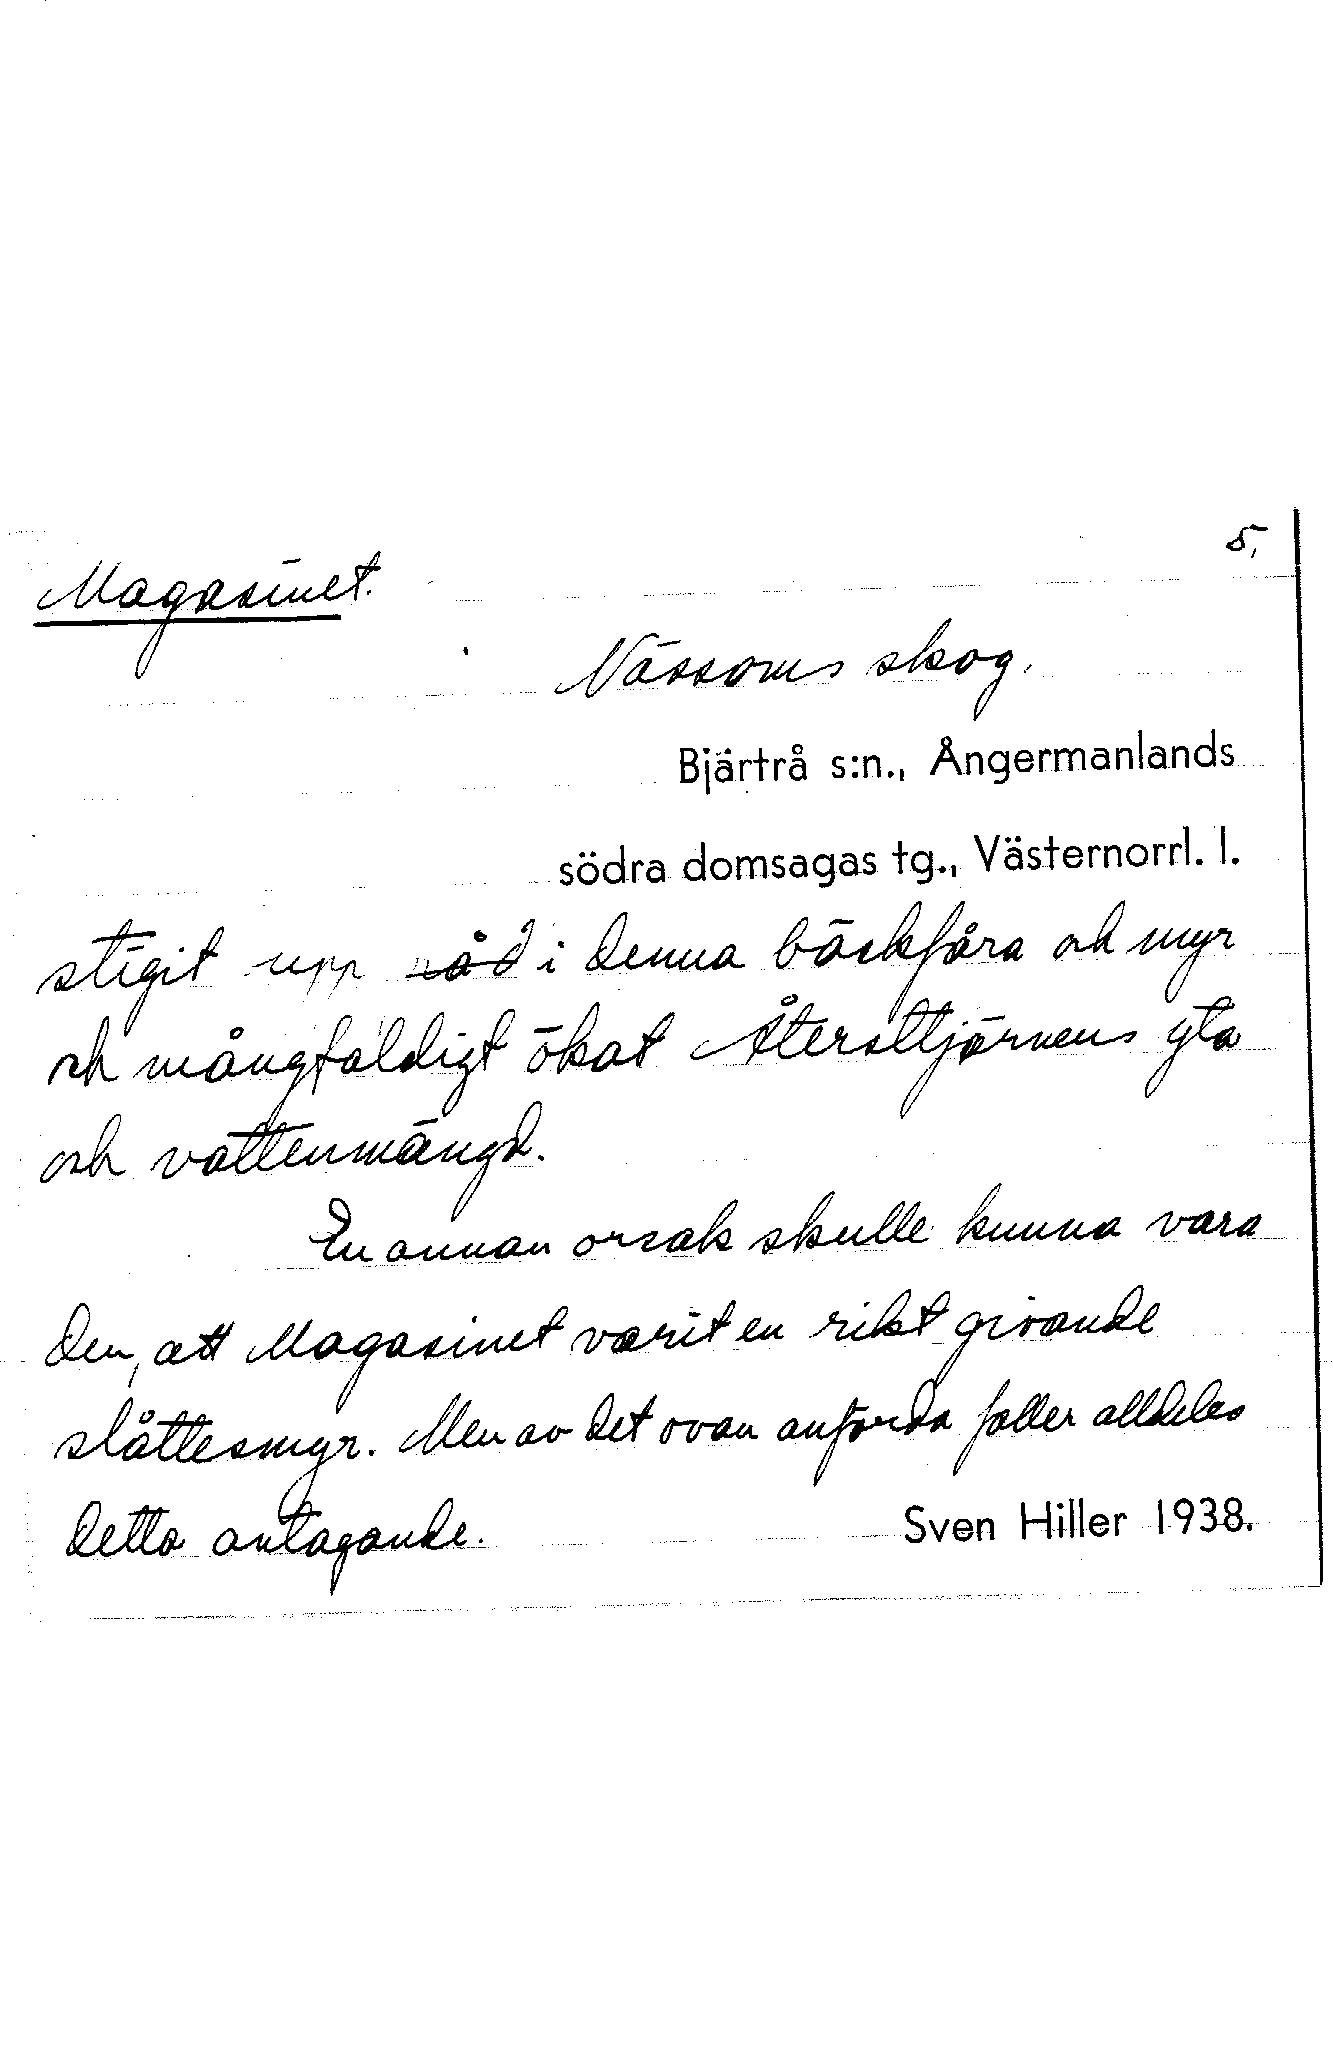 5.
Magasinet.
Nässoms skog.
Bjärtrå s:n., Ångermanlands
södra domsagas tg., Västernorrl. l.
stigit upp i denna bäckfåra och myr
och mångfaldigt ökat Återsttjärnens yta
och vattenmängd.
En annan orsak skulle kunna vara
den, att Magasinet varit en rikt givande
slåttesmyr. Men av det ovan anförda faller alldeles
detta antagande.
Sven Hiller 1938.